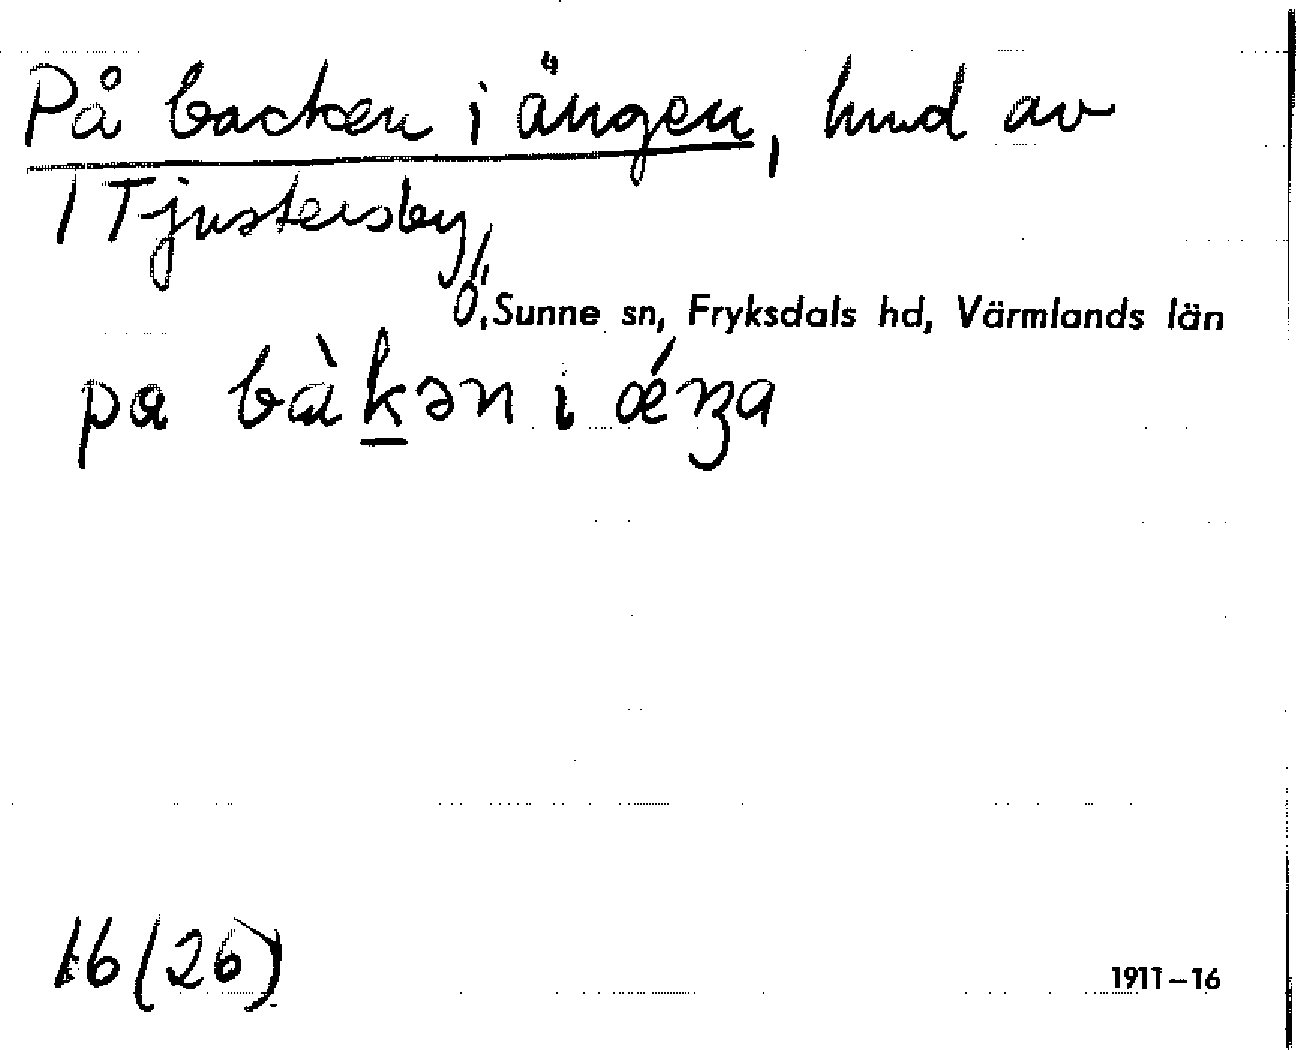 På backen i ängen, hmd av
1 Tjustersby,
Ö. Sunne sn, Fryksdals hd, Värmlands län
pa bàkən i ǽŋa
16 (26)
1911–16